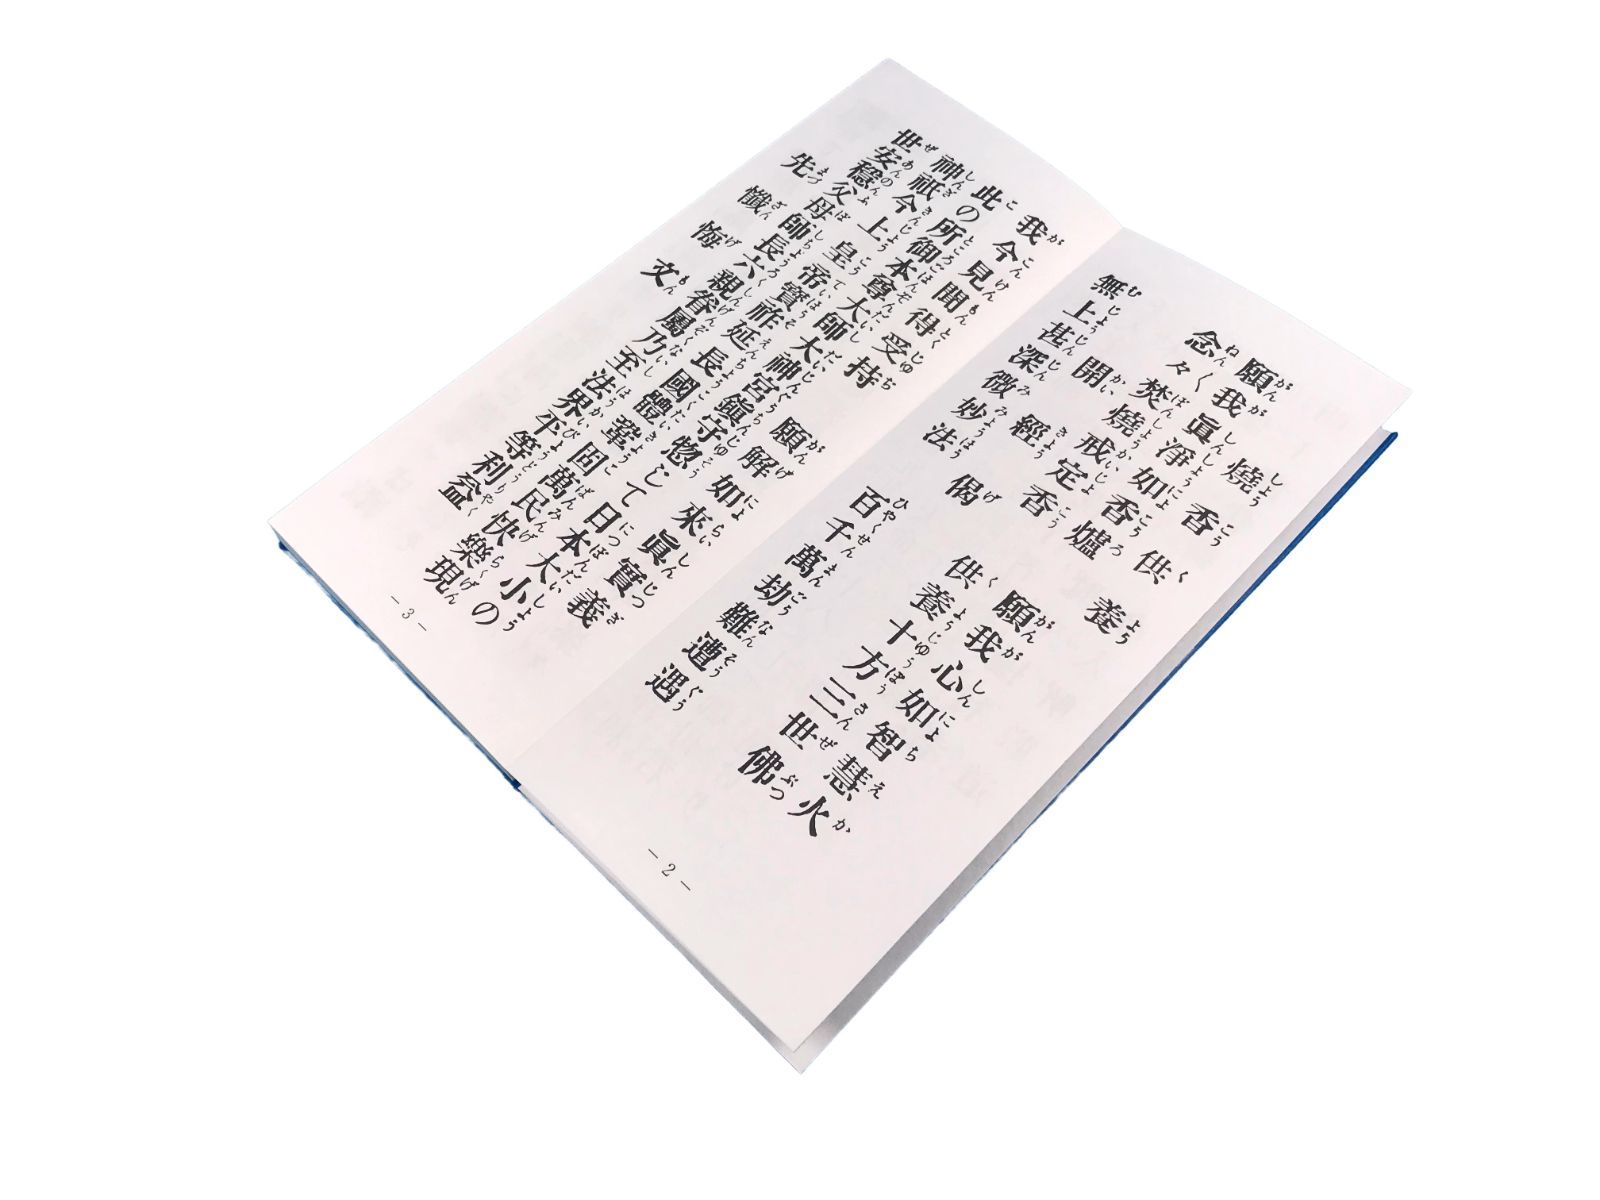 燒香供養
願我眞淨如香爐　願我心如智慧火
念々焚燒戒定香　供養十方三世佛
開經偈
無上甚深微妙法　百千萬劫難遭遇
－2－
我今見聞得受持　願解如來眞實義
此の所御本尊大師大神宮鎭守惣じて日本大小の
神祇今上皇帝寶祚延長國體鞏固萬民快樂現
世安穩父母師長六親眷屬乃至法界平等利益
先懺悔文
－3－